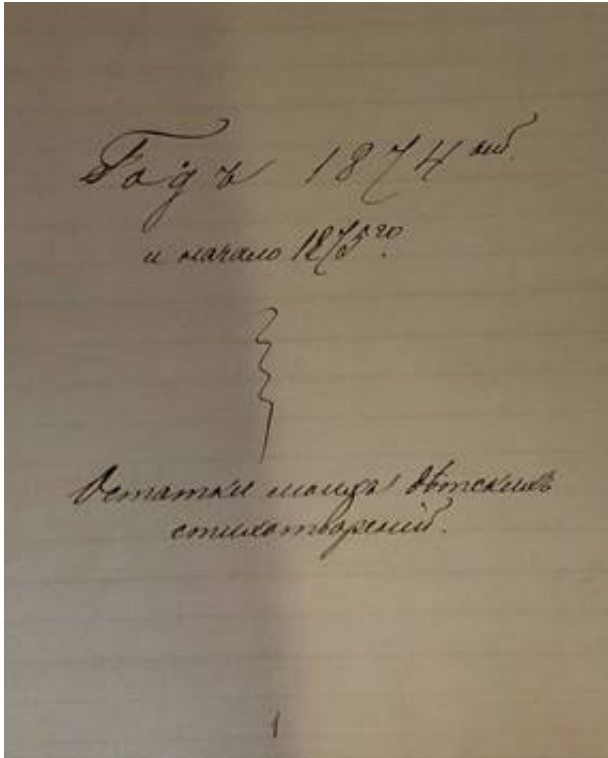 Годъ 1874ый.
и начало 1875го.
Остатки моихъ дѣтскихъ
стихотвореній.
1